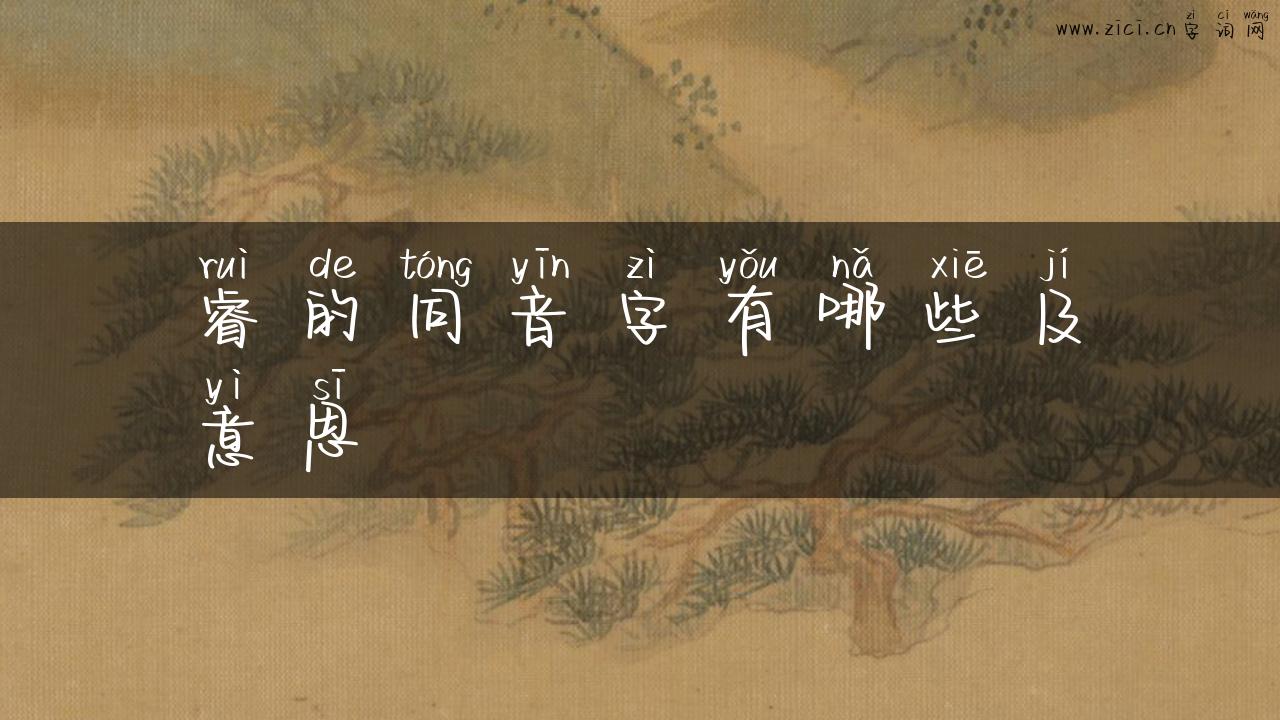 zì cí wǎng
www.zici.cn 字词网
ruì de tóng yīn zì yǒu nǎ xiē jí
睿的同音字有哪些及
yì sī
意思